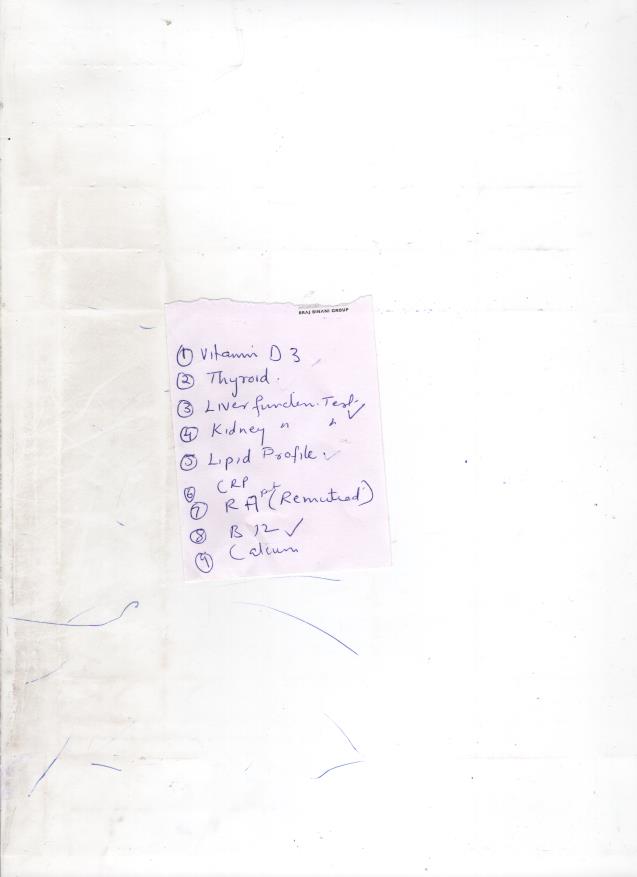 BRAJ BINANI GROUP
① Vitamin D 3
② Thyroid.
③ Liver funcden. Test.
④ Kidney " "
⑤ Lipid Profile.
⑥ CRP
⑦ RA (Remutred)
⑧ B 12
⑨ Calcium